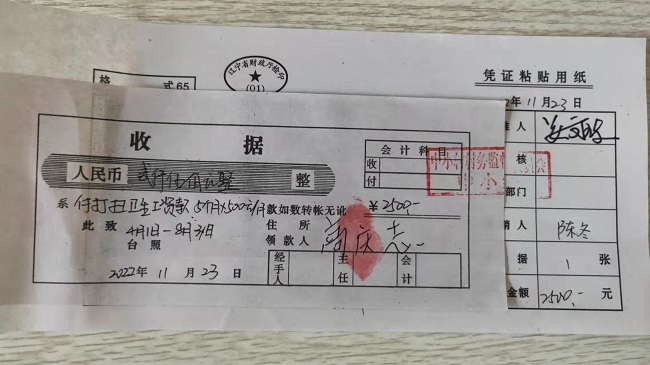 辽宁省财政厅检印
(01)
格 式65
凭证粘贴用纸
年11月23日
收据
会计科目
收
付
人民币 贰仟伍佰元整 整
系 付打扫卫生工资款 5个月×500元/月 款如数转帐无讹 ¥2500.-
此致 4月1日-8月31日 住所
台照 领款人
2022年11月23日
经手人 主任 会计
人
核
部门
销人 陈冬
据 1 张
金额 2500.- 元